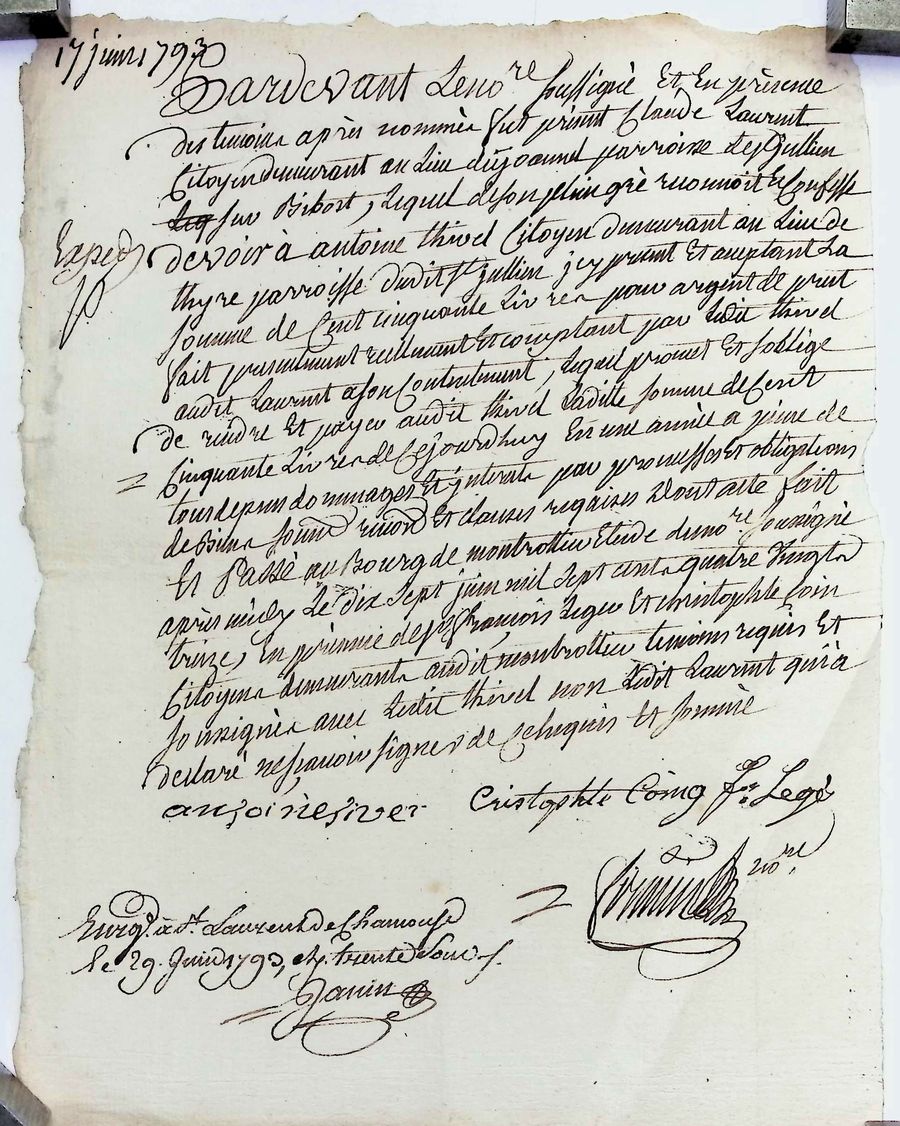 17 juin 1793
Pardevant Le no.re soussigné Et En présence
des témoins après nommés fut présent Claude Laurent
Citoyen demeurant au Lieu du joannel parroisse de St jullien
sur Bibost, Lequel de son plein gré reconnoit Et Confesse
Exped
devoir à antoine thivel Citoyen demeurant au Lieu de
thyre parroisse dudit St jullien jcy présent Et acceptant La
somme de Cent cinquante Livres pour argent de prest
fait présentement réellement Et comptant par Ledit thivel
audit Laurent a son Contentement, Lequel promet Et soblige
de rendre Et payer audit thivel Ladite somme de Cent
Cinquante Livres de Cejourdhuy En une année a peine de
tous depens dommages Et jnterets par promesses Et obligations
de Biens soumis. renon. Et clauses requises Dont acte fait
Et Passé au Bourg de montrottier Etude du no.re soussigné
après midy Le dix sept juin mil sept cents quatre Vingts
treize, En présence de S.rs françois Leger Et christophle Coin
Citoyens demeurants audit montrottier temoins requis Et
soussignés avec Ledit thivel non Ledit Laurent qui a
declaré ne sçavoir signer de Ce Enquis Et sommé
antoine tivel Cristophle Coing f.s Legé
no.re
Enregé. à St. Laurent de Chamousset
le 29. Juin 1793, R. trente Sous
Janin